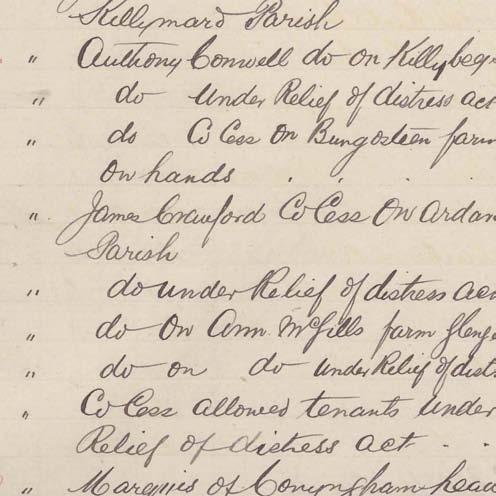 Killymard Parish
" Anthony Conwell do on Killybeg
" do Under Relief of distress act
" do Co Cess on Bungosteen farm
on hands . . . .
" James Crawford Co Cess On Ardar
Parish
" do under Relief of distress act
" do On Ann McGills farm Glenge
" do on do under Relief of dist
" Co Cess allowed tenants under
Relief of distress act . .
" Marquis of Conyngham head